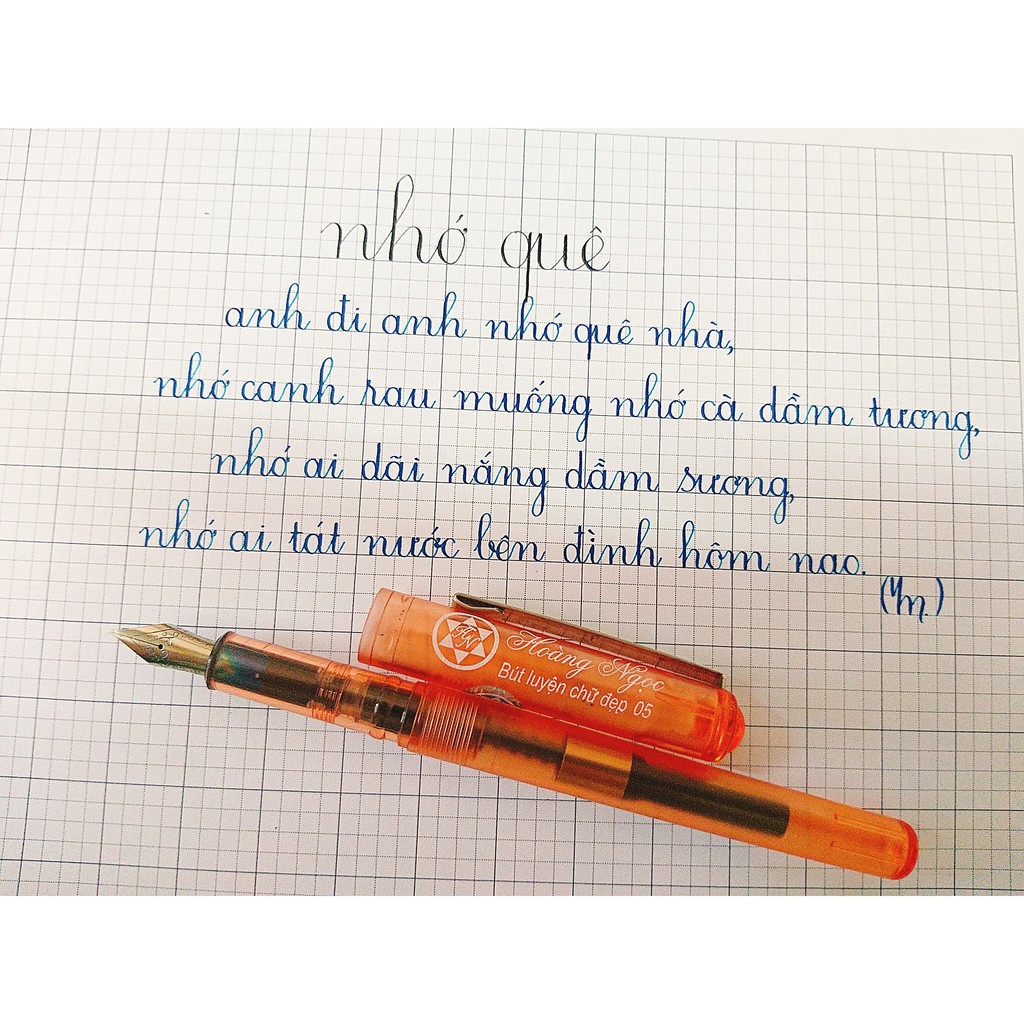 nhớ quê
anh đi anh nhớ quê nhà,
nhớ canh rau muống nhớ cà dầm tương,
nhớ ai dãi nắng dầm sương,
nhớ ai tát nước bên đình hôm nao.
HN
Hoàng Ngọc
Bút luyện chữ đẹp 05